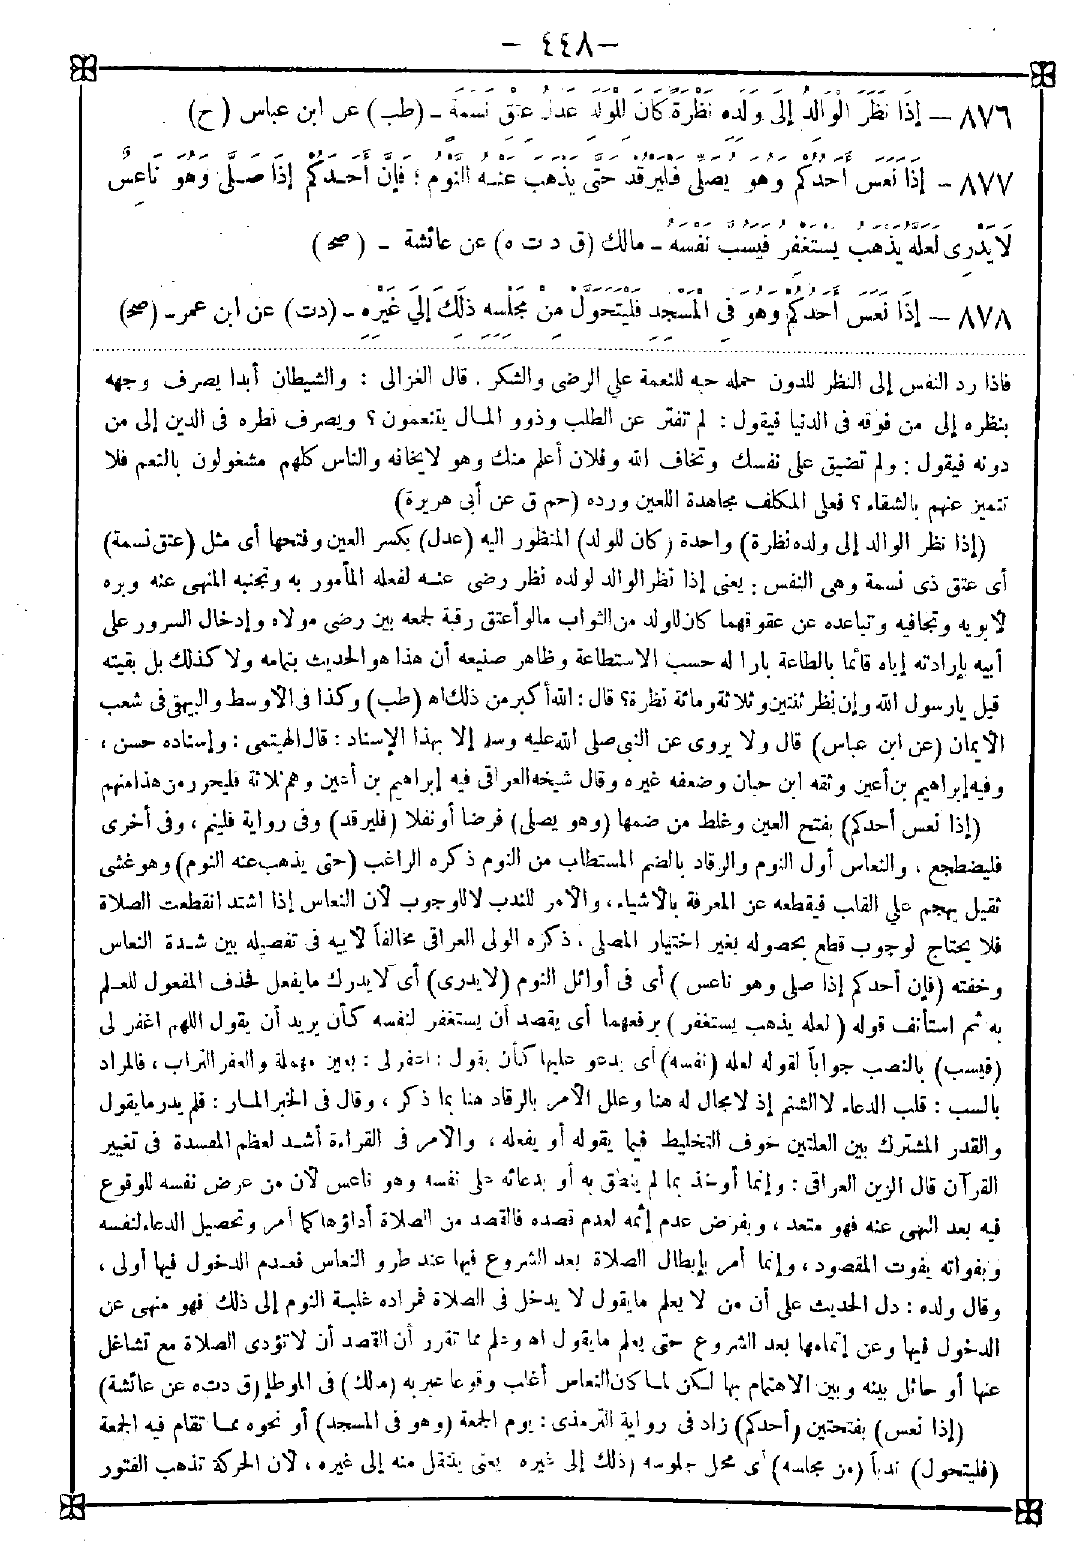 – ٤٤٨ –
٨٧٦ – إِذَا نَظَرَ الْوَالِدُ إِلَى وَلَدِهِ نَظْرَةً كَانَ لِلْوَلَدِ عَدْلُ عِتْقِ نَسَمَةٍ – (طب) عن ابن عباس (ح)
٨٧٧ – إِذَا نَعَسَ أَحَدُكُمْ وَهُوَ يُصَلِّى فَلْيَرْقُدْ حَتَّى يَذْهَبَ عَنْهُ النَّوْمُ ؛ فَإِنَّ أَحَدَكُمْ إِذَا صَلَّى وَهُوَ نَاعِسٌ
لَا يَدْرِى لَعَلَّهُ يَذْهَبُ يَسْتَغْفِرُ فَيَسُبَّ نَفْسَهُ – مالك (ق د ت ه) عن عائشة – (صح)
٨٧٨ – إِذَا نَعَسَ أَحَدُكُمْ وَهُوَ فِى الْمَسْجِدِ فَلْيَتَحَوَّلْ مِنْ مَجْلِسِهِ ذَلِكَ إِلَى غَيْرِهِ – (دت) عن ابن عمر – (صح)
فاذا رد النفس إلى النظر للدون حمله حبه للنعمة على الرضى والشكر . قال الغزالى : والشيطان أبدا يصرف وجهه
بنظره إلى من فوقه فى الدنيا فيقول : لم تفتر عن الطلب وذوو المال يتنعمون ؟ ويصرف نظره فى الدين إلى من
دونه فيقول : ولم تضيق على نفسك وتخاف الله وفلان أعلم منك وهو لايخافه والناس كلهم مشغولون بالتنعم فلا
تتميز عنهم بالشقاء ؟ فعلى المكلف مجاهدة اللعين ورده (حم ق عن أبى هريرة)
(إذا نظر الوالد إلى ولده نظرة) واحدة (كان للولد) المنظور اليه (عدل) بكسر العين وفتحها أى مثل (عتق نسمة)
أى عتق ذى نسمة وهى النفس : يعنى إذا نظر الوالد لولده نظر رضى عنه لفعله المأمور به وتجنبه المنهى عنه وبره
لأبويه وتجافيه وتباعده عن عقوقهما كان للولد من الثواب مالو أعتق رقبة لجمعه بين رضى مولاه وإدخال السرور على
أبيه بإرادته إياه قائما بالطاعة بارا له حسب الاستطاعة وظاهر صنيعه أن هذا هو الحديث بتمامه ولا كذلك بل بقيته
قيل يارسول الله وإن نظر ثنتين وثلاثة ومائة نظرة؟ قال : الله أكبر من ذلك اه (طب) وكذا فى الأوسط والبيهقى فى شعب
الأيمان (عن ابن عباس) قال ولا يروى عن النبى صلى الله عليه وسلم إلا بهذا الإسناد : قال الهيتمى : وإسناده حسن ،
وفيه إبراهيم بن أعين وثقه ابن حبان وضعفه غيره وقال شيخه العراقى فيه إبراهيم بن أعين وهم ثلاثة فليحرر من هذا منهم
(إذا نعس أحدكم) بفتح العين وغلط من ضمها (وهو يصلى) فرضا أو نفلا (فليرقد) وفى رواية فلينم ، وفى أخرى
فليضطجع ، والنعاس أول النوم والرقاد بالضم المستطاب من النوم ذكره الراغب (حتى يذهب عنه النوم) وهو غشى
ثقيل يهجم على القلب فيقطعه عن المعرفة بالأشياء ، والأمر للندب لا للوجوب لأن النعاس إذا اشتد انقطعت الصلاة
فلا يحتاج لوجوب قطع بحصوله بغير اختيار المصلى ، ذكره الولى العراقى مخالفاً لأبيه فى تفصيله بين شدة النعاس
وخفته (فإن أحدكم إذا صلى وهو ناعس) أى فى أوائل النوم (لايدرى) أى لايدرك مايفعل لحذف المفعول للعلم
به ثم استأنف قوله (لعله يذهب يستغفر) برفعهما أى يقصد أن يستغفر لنفسه كأن يريد أن يقول اللهم اغفر لى
(فيسب) بالنصب جواباً لقوله لعله (نفسه) أى يدعو عليها كأن يقول : اعفر لى : بعين مهملة والعفر التراب ، فالمراد
بالسب : قلب الدعاء لا الشتم إذ لامجال له هنا وعلل الأمر بالرقاد هنا بما ذكر ، وقال فى الخبر المار : فلم يدر مايقول
والقدر المشترك بين العلتين خوف التخليط فيما يقوله أو يفعله ، والأمر فى القراءة أشد لعظم المفسدة فى تغيير
القرآن قال الزين العراقى : وإنما أوخذ بما لم ينطق به أو بدعائه على نفسه وهو ناعس لأن من عرض نفسه للوقوع
فيه بعد النهى عنه فهو متعد ، وبفرض عدم إثمه لعدم قصده فالقصد من الصلاة أداؤها كما أمر وتحصيل الدعاء لنفسه
وبفواته يفوت المقصود ، وإنما أمر بإبطال الصلاة بعد الشروع فيها عند طرو النعاس فعدم الدخول فيها أولى ،
وقال ولده : دل الحديث على أن من لا يعلم مايقول لا يدخل فى الصلاة فمراده غلبة النوم إلى ذلك فهو منهى عن
الدخول فيها وعن إتمامها بعد الشروع حتى يعلم مايقول اه وعلم مما تقرر أن القصد أن لاتؤدى الصلاة مع تشاغل
عنها أو حائل بينه وبين الاهتمام بها لكن لما كان النعاس أغلب وقوعا عبر به (مالك) فى الموطإ (ق دت ه عن عائشة)
(إذا نعس) بفتحتين (أحدكم) زاد فى رواية الترمذى : يوم الجمعة (وهو فى المسجد) أو نحوه مما تقام فيه الجمعة
(فليتحول) ندباً (من مجلسه) أى محل جلوسه (ذلك إلى غيره يعنى ينتقل منه إلى غيره ، لأن الحركة تذهب الفتور